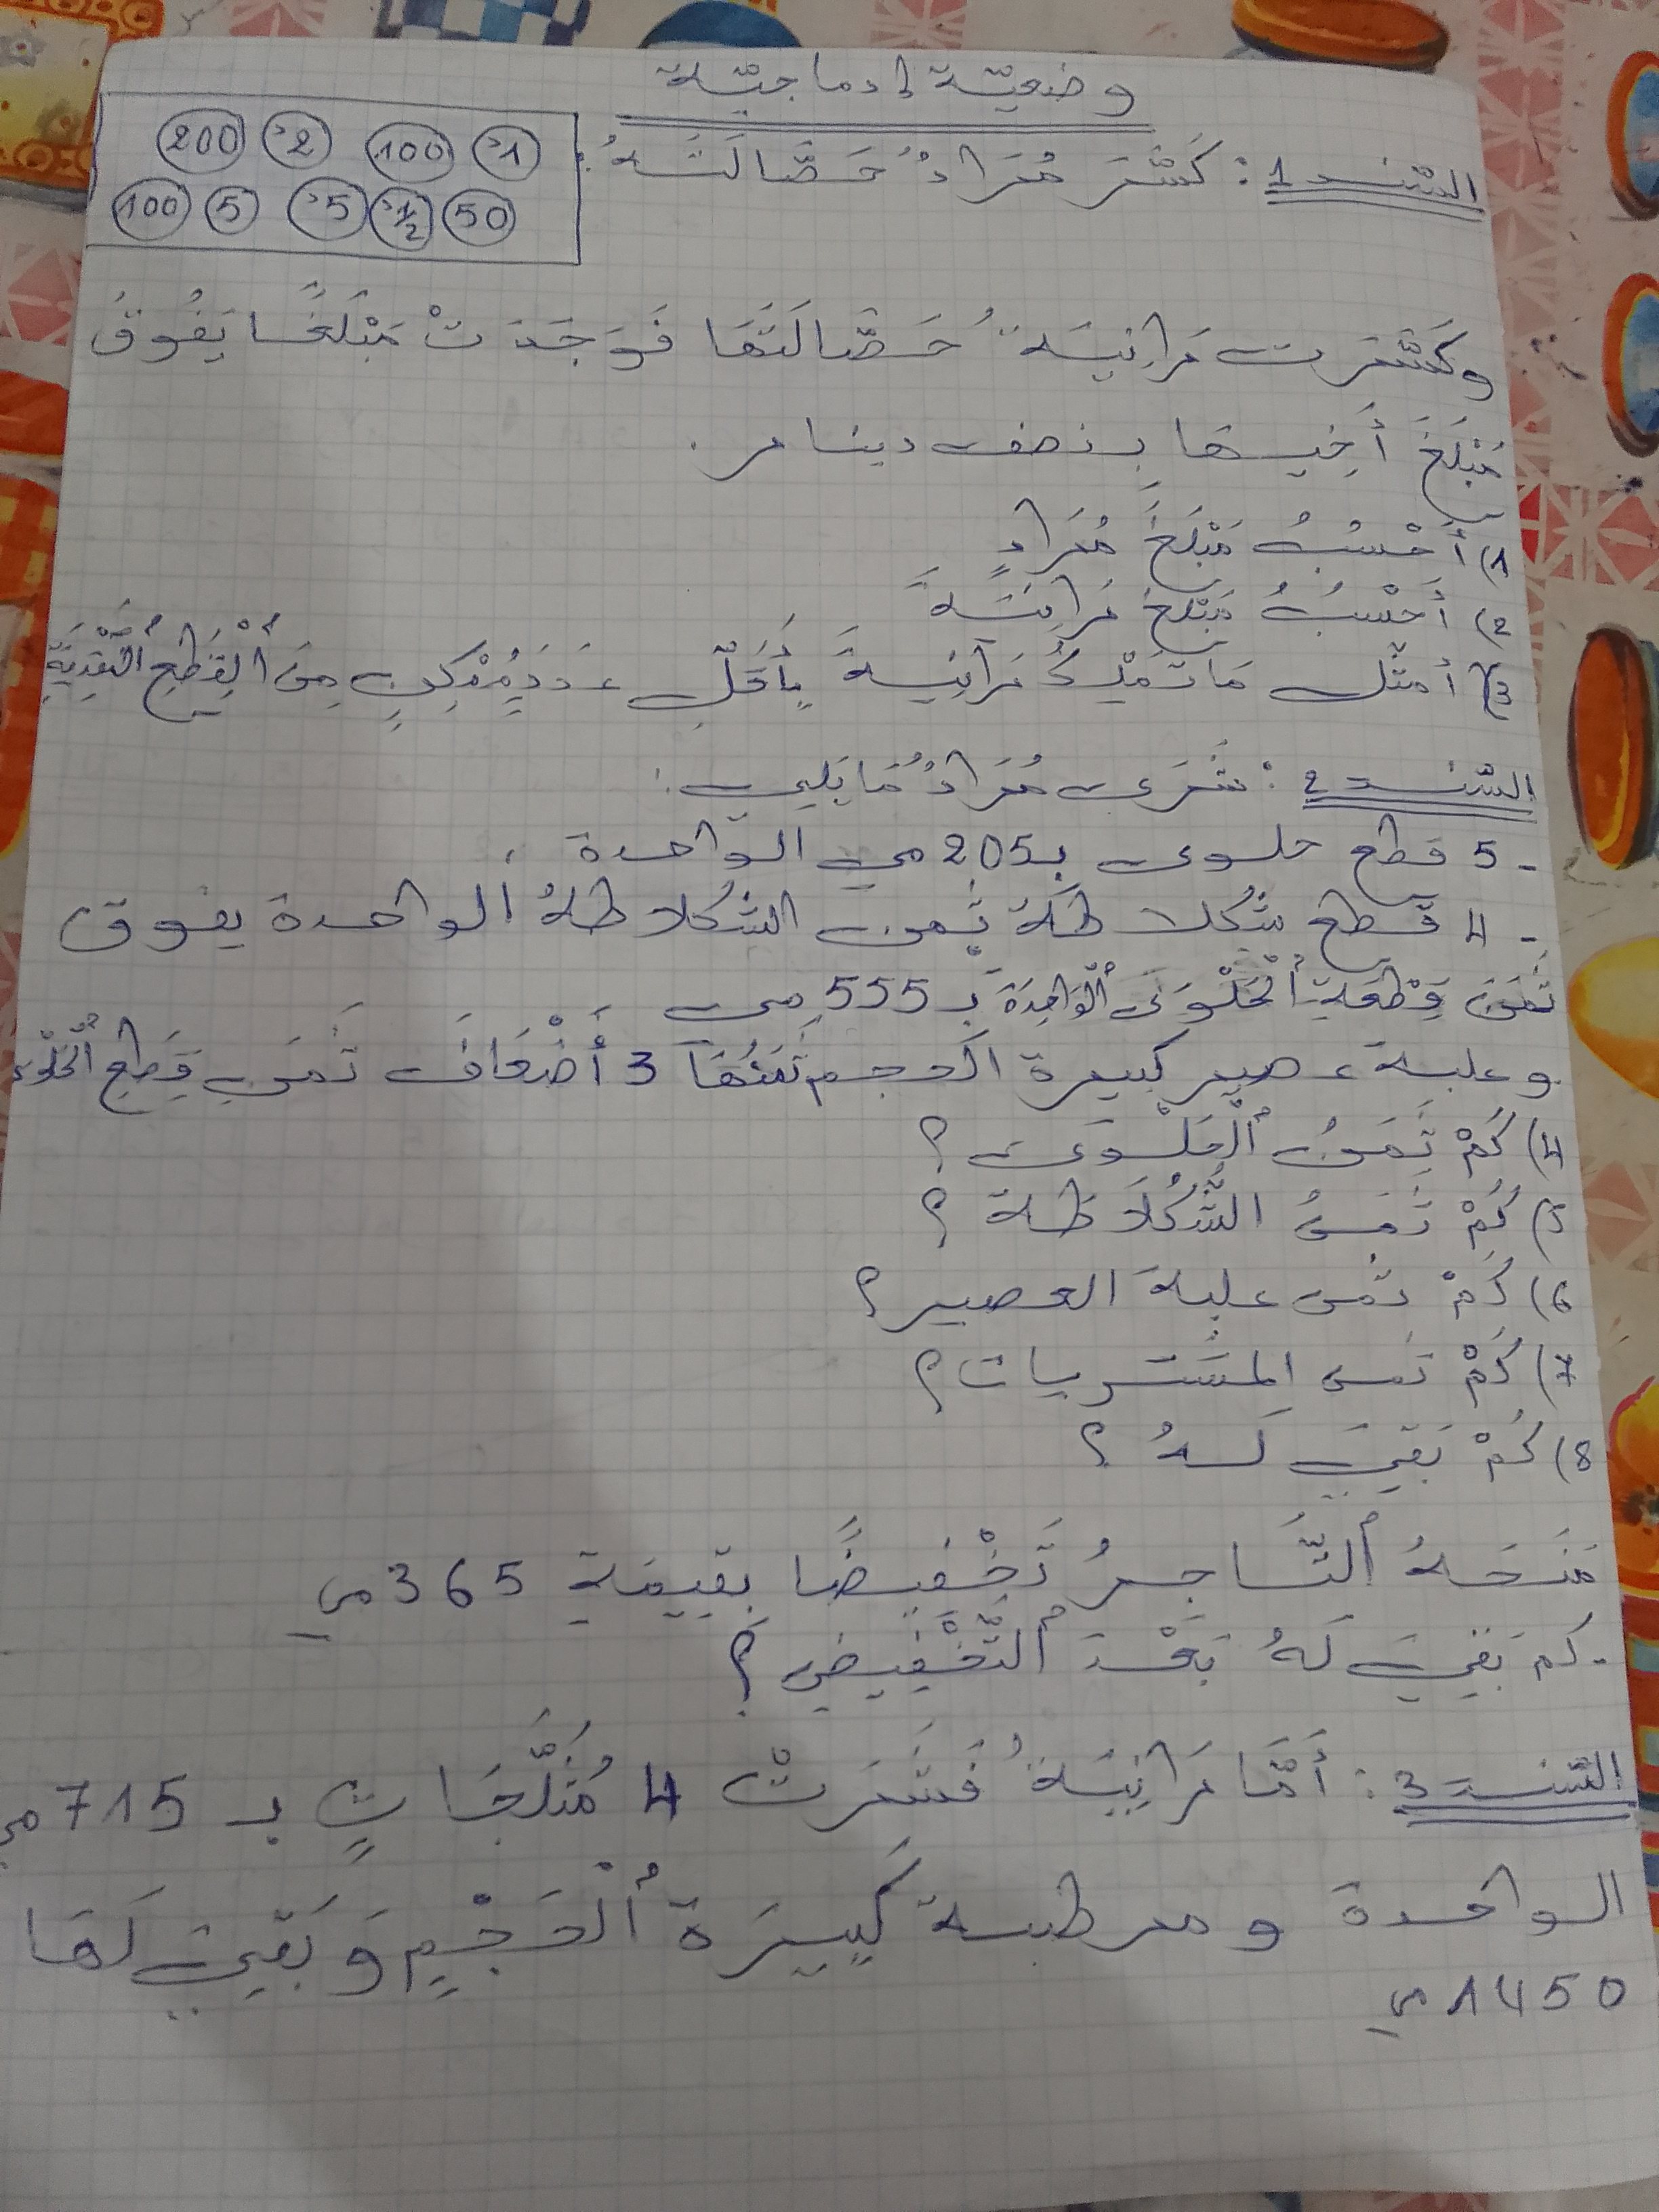 وضعيّة إدماجيّة
السّند 1: كَسَّرَ مُرَادٌ حَصَّالَتَهُ:
200 2د 100 1د
100 5 5د 1/2د 50
وكَسَّرت رَانِيَةُ حَصَّالَتَهَا فَوَجَدَتْ مَبْلَغًا يَفُوقُ
مَبْلَغَ أَخِيهَا بِنصف دينار.
1) أَحْسُبُ مَبْلَغَ مُرَادٍ
2) أَحْسُبُ مَبْلَغَ رَانِيَةَ
3) أمثّل مَا تَمْلِكُ رَانِيَةَ بِأَقَلِّ عَدَدٍ مُمْكِنٍ مِنَ ٱلْقِطَعِ ٱلنَّقْدِيَّةِ
السّند 2: شَرَى مُرَادٌ مَا يَلِي:
- 5 قطع حلوى بـ 205 مي الواحدة.
- 4 قطع شكلاطة ثمن الشكلاطة الواحدة يفوق
ثَمَنَ قِطْعَةِ ٱلْحَلْوَى ٱلْوَاحِدَةَ بـ 555 مي
وعلبة عصير كبيرة الحجم ثَمَنُهَا 3 أَضْعَافَ ثَمَنِ قِطَعِ ٱلْحَلْوى
4) كَمْ ثَمَنُ ٱلْحَلْوَى؟
5) كَمْ ثَمَنُ الشُّكُلَاطَة؟
6) كَمْ ثمن علبة العصير؟
7) كَمْ ثمن المشتريات؟
8) كَمْ بَقِيَ لَهُ؟
مَنَحَهُ ٱلتَّاجِرُ تَخْفِيضًا بقيمَةِ 365 مي
- كم بَقِيَ لَهُ بَعْدَ ٱلتَّخْفِيضِ؟
السّند 3: أَمَّا رَانِيَةُ فَشَرَتْ 4 مُثَلَّجَاتٍ بـ 715 مي
الواحدة ومرطبة كَبِيرَة ٱلْحَجْمِ وَبَقِيَ لَهَا
1450 مي